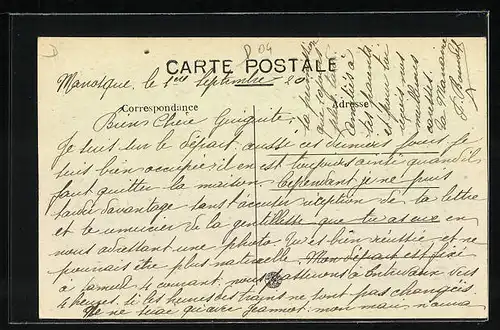 CARTE POSTALE
Manosque, le 1er Septembre 20
Correspondance
Adresse
Biens Chère Guiguite,
Je suis sur le départ aussi ces derniers jours je
suis bien occupée, il en est toujours ainsi quand il
faut quitter la maison. Cependant je ne puis
tarder davantage sans t'accuser réception de la lettre
et te remercier de la gentillesse que tu as eue en
nous adressant une photo. Tu es bien réussie et ne
pourrais être plus naturelle. Mon départ est fixé
à samedi 4 courant, nous passerons à Entrevaux vers
4 heures, si les heures des trains ne sont pas changées.
Je ne serai qu'avec Jeannot, mon mari n'aura
la permission
que
et pour toi
reçois nos
meilleures